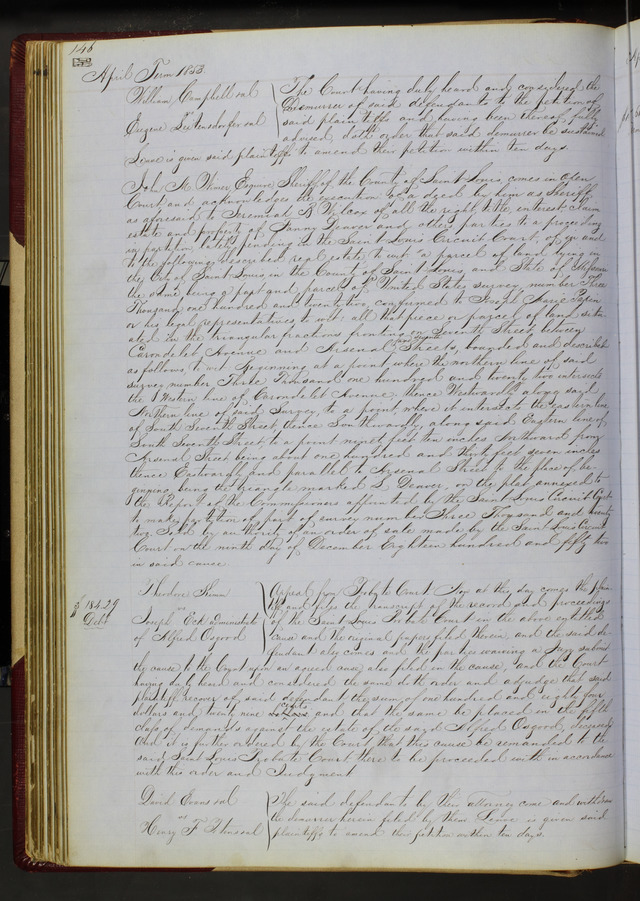 146
April Term 1853
William Campbell et al
vs
Eugene Leitensdorfer et al
The Court having duly heard and considered the
Demurrer of said defendants to the petition of
said plaintiffs and having been thereof fully
advised, doth order that said demurrer be sustained
Leave is given said plaintiffs to amend their petition within ten days.
M. Wimer, Esquire Sheriff of the County of Saint Louis, comes in open
Court and acknowledges the execution of a deed by him as Sheriff
as aforesaid to Jeremiah B. Wilcox of all the right, title, interest claim
estate and property of Fanny Denver and others parties to a proceeding
in partition, lately pending in the Saint Louis Circuit Court, of in and
to the following described real estate, to wit: "a parcel of land lying in
the City of Saint Louis in the County of Saint Louis, and State of Missouri
the same being a part and parcel of United States survey, number Three
Thousand one hundred and twenty two, confirmed to Joseph Marie Papin
or his legal representatives to wit: all that piece or parcel of land situ-
ated in the triangular fractions fronting on Seventh Street between
Carondelet Avenue and Arsenal Streets, bounded and described
as follows to wit: Beginning at a point where the northern line of said
survey number Three Thousand one hundred and twenty two intersects
the Western line of Carondelet Avenue, thence Westwardly along said
Northern line of said survey, to a point where it intersects the eastern line
of South Seventh Street, thence Southwardly, along said Eastern line of
South Seventh Street, to a point ninety feet ten inches Northward from
Arsenal Street being about one hundred and thirty feet seven inches
thence Eastwardly and parallel to Arsenal Street to the place of be-
ginning, being the triangle marked L Denver, on the plat annexed to
the Report of the Commissioners appointed by the Saint Louis Circuit Court
to make partition of part of survey number Three Thousand and twenty
two. Sold by authority of an order of sale made by the Saint Louis Circuit
Court on the ninth day of December Eighteen hundred and fifty two
in said cause.
184.29
Debt
Theodore
vs
Joseph Eck Administrator
of Alfred Osgood
Appeal from Probate Court. Now at this day comes the plain-
tiff, and files the transcript of the record and proceedings
of the Saint Louis Probate Court in the above entitled
cause and the original papers filed therein and the said de-
fendant also comes and the parties waiving a Jury submit
the cause to the Court upon an agreed case also filed in the cause, and the Court
having duly heard and considered the same doth order and adjudge that said
plaintiff recover of said defendant the sum of one hundred and eighty four
dollars and twenty nine cents and that the same be placed in the fifth
class of demands against the estate of the said Alfred Osgood, deceased
And it is further ordered by the Court that this cause be remanded to the
said Saint Louis Probate Court there to be proceeded with in accordance
with this order and Judgment
David Evans et al
vs
Henry F. et al
The said defendants by their attorney come and withdraw
the demurrer herein filed by them Leave is given said
plaintiffs to amend their petition within ten days.